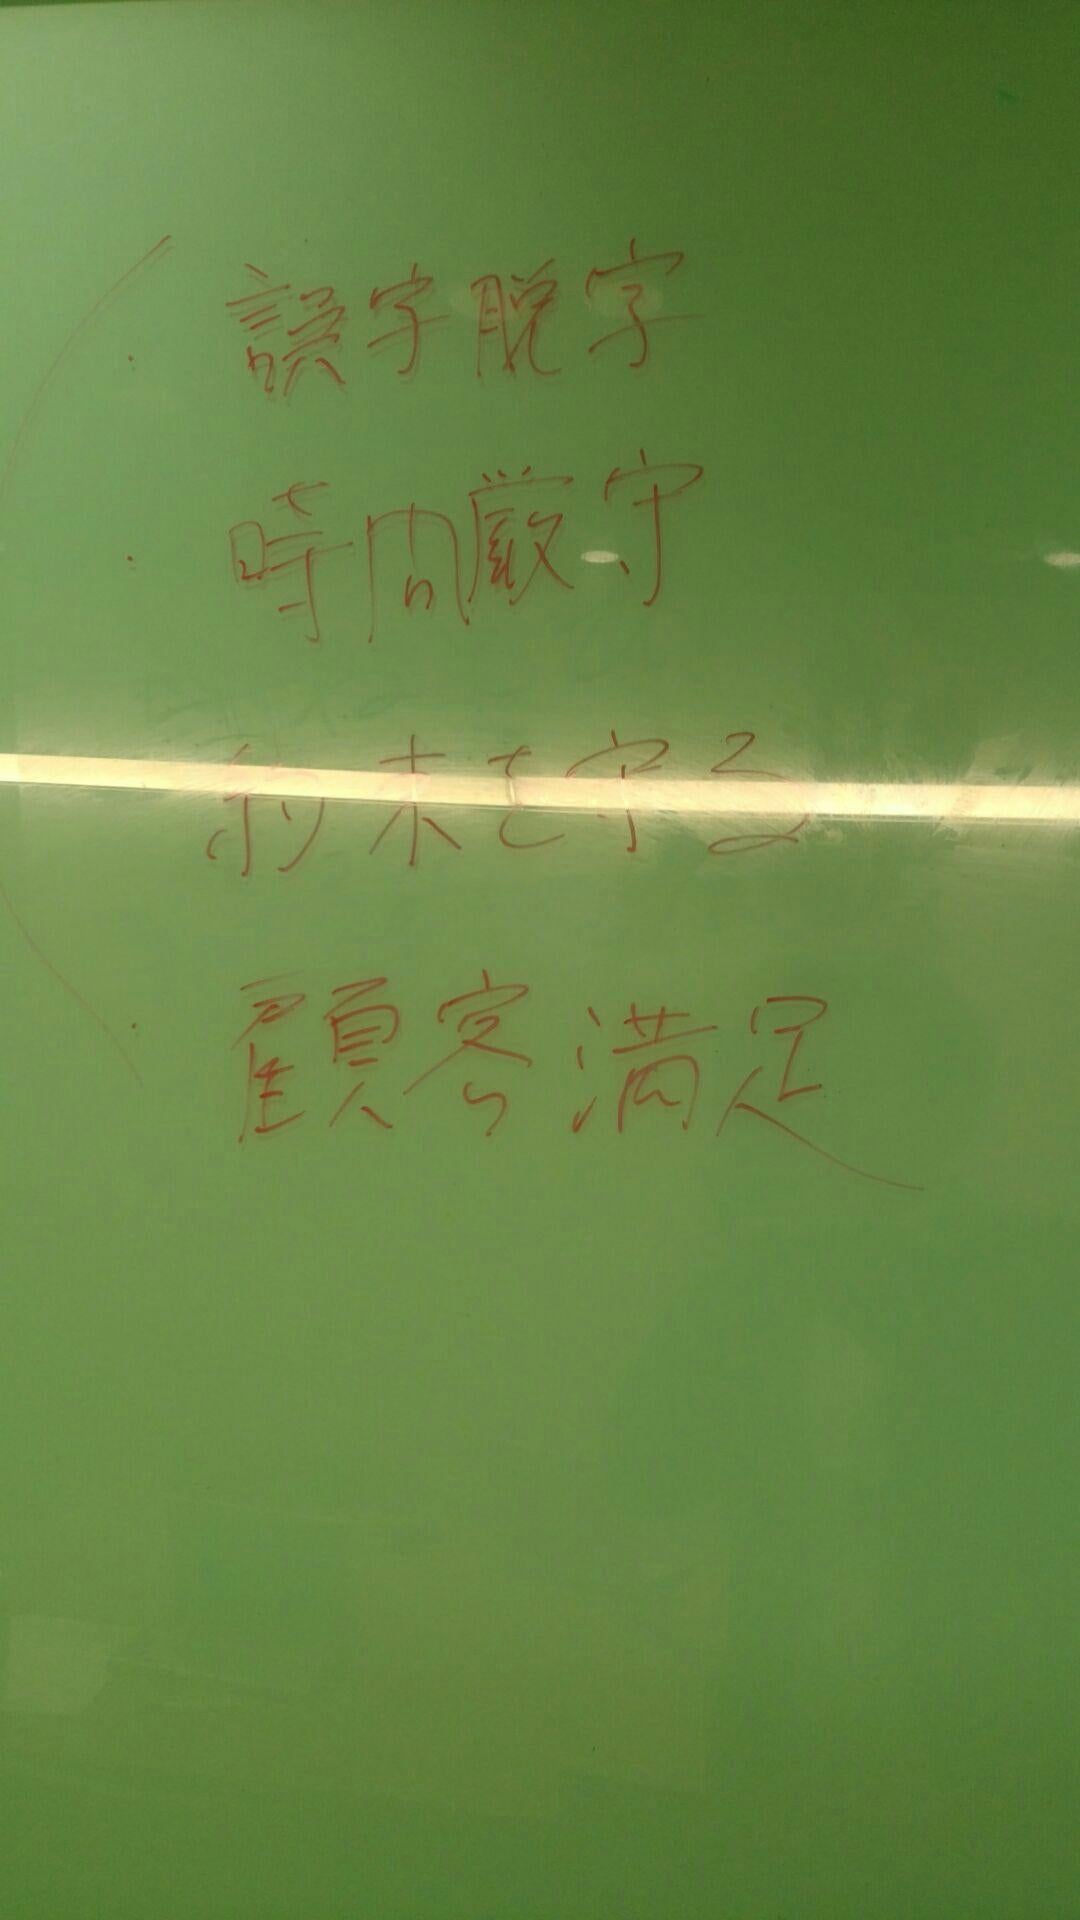 ・誤字脱字
・時間厳守
約束を守る
・顧客満足